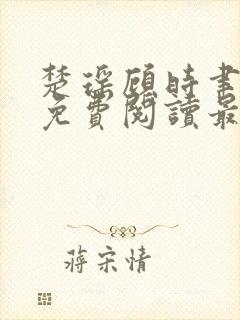 楚瑤顧時書
免費閱讀最
蔣宋情